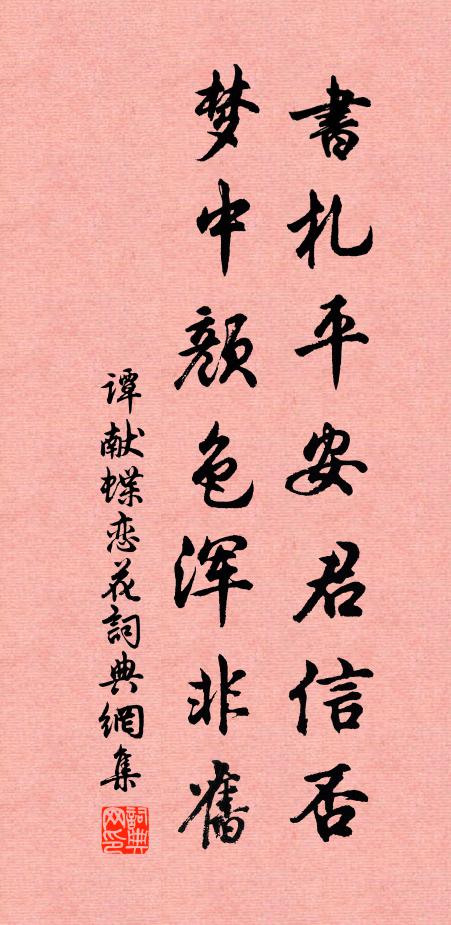 書札平安君信否
梦中颜色浑非舊
谭献蝶恋花詞典網集
詞典网印